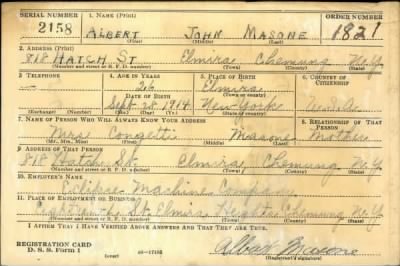 SERIAL NUMBER 1. NAME (Print) ORDER NUMBER
2158 ALBERT JOHN MASONE 1821
(First) (Middle) (Last)
2. ADDRESS (Print)
818 HATCH ST Elmira Chemung N.Y.
(Number and street or R. F. D. number) (Town) (County) (State)
3. TELEPHONE 4. AGE IN YEARS 5. PLACE OF BIRTH 6. COUNTRY OF CITIZENSHIP
— 26 Elmira
DATE OF BIRTH (Town or county)
Sept 28 1914 New York
(Exchange) (Number) (Mo.) (Day) (Yr.) (State or country)
7. NAME OF PERSON WHO WILL ALWAYS KNOW YOUR ADDRESS 8. RELATIONSHIP OF THAT PERSON
Mrs Congetti Masone Mother
(Mr., Mrs., Miss) (First) (Middle) (Last)
9. ADDRESS OF THAT PERSON
818 Hatch St. Elmira Chemung N.Y.
(Number and street or R. F. D. number) (Town) (County) (State)
10. EMPLOYER'S NAME
Eclipse Machine Company
11. PLACE OF EMPLOYMENT OR BUSINESS
St. Elmira Heights Chemung N.Y.
(Number and street or R. F. D. number) (Town) (County) (State)
I AFFIRM THAT I HAVE VERIFIED ABOVE ANSWERS AND THAT THEY ARE TRUE.
REGISTRATION CARD
D. S. S. Form 1 (over) 16—17105 Albert Masone
(Registrant's signature)